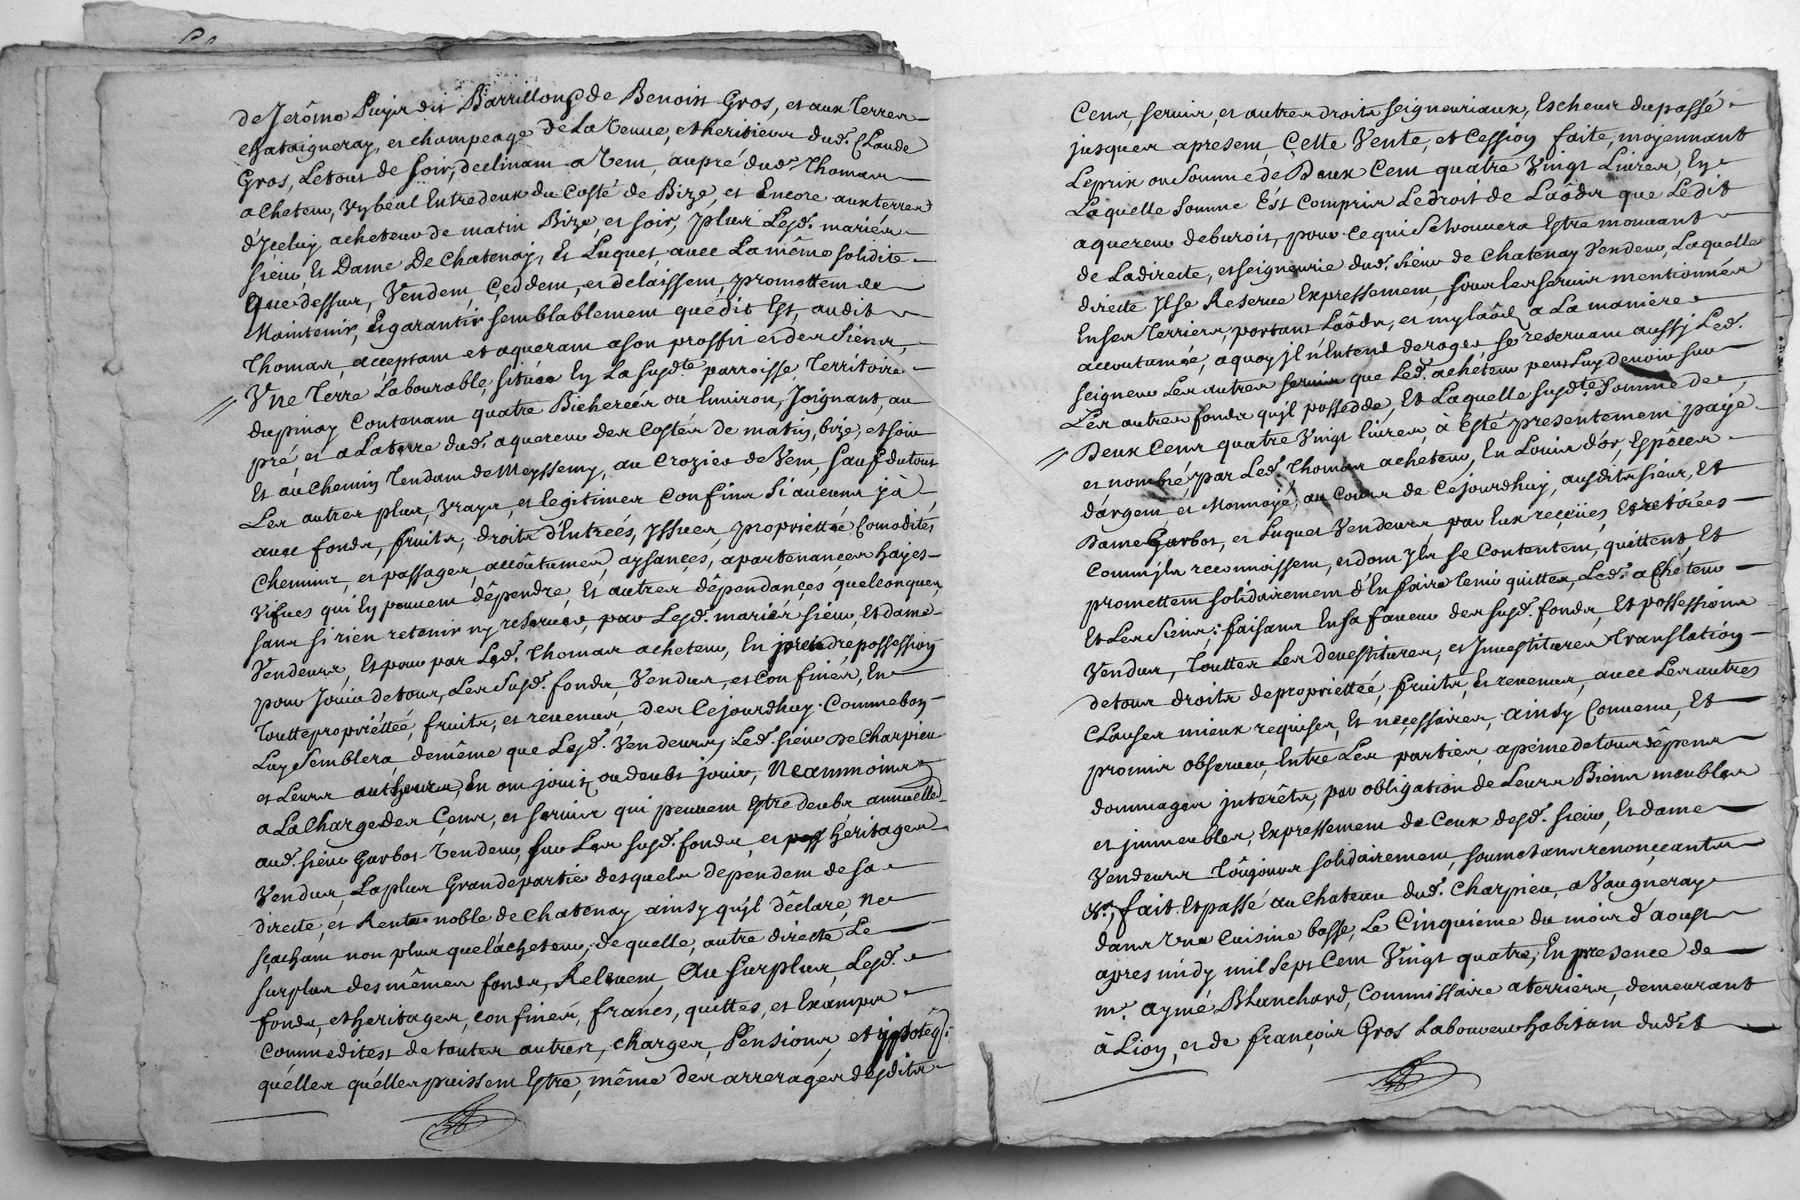 de Jerôme Puya dit Barrillon, de Benoist Gros, et aux Terres
chataigneray, et champeage de La veuve, et heritiers dud. Claude
Gros, Le tout de soir, declinant a vent, au pré dud. Thomas
achepteur, Entredeux du Costé de Bize, et Encore aux terres
d'Iceluy acheteur de matin Bize, et soir, Plus Lesd. mariés
sieur, Et Dame De Chatenay, Et Luquet, avec La même solidité
Que dessus, Vendent, Çeddent, et delaissent, promettent de
Maintenir, Et garantir semblablement que dit Est, audit
Thomas, acceptant et aquerant a son proffit et des siens,
Vne Terre Labourable, située En La susd.te parroisse, Territoire
dupinay Contenant quatre Bicherées ou Environ, Joignant, au
pré, et a La terre dud. aquereur des Costés de matin, bize, et soir
Et au Chemin Tendant de Meyssemy, au Crozier de Vent, sauf du tout
Les autres plus, vrays, et legitimes Confins si aucuns y a,
avec fonds, fruits, droits d'Entrées, Yssues, proprietté Comodités,
Chemins, et passages, accoûtumés, aysances, apartenances hayes
Visues qui En peuvent dêpendre, Et autres dêpendances quelconques,
sans si rien retenir ny reserver, par Lesd. mariés sieur, Et dame
Vendeurs, Et pour par Led. Thomas acheteur, En prendre possession
pour Jouir de tous, Les Susd. fonds, Vendus, et Confinés, En
Toutte propriettée, fruits, et revenus, des Cejourdhuy Comme bon
Luy Semblera demême que Lesd. Vendeurs, Led. sieur De Charpieu
et Leurs autheurs, En ont jouit, ou deubt jouir, Neanmoins
a La Charge des Çens, et servis qui peuvent Estre deubs annuelle.
aud. sieur Garbot Vendeur, sur Les susd. fonds, et heritages
Vendus, La plus Grande partie desquels dependent de sa
directe, et Rente noble de Chatenay ainsy qu'jl dêclare, Ne
sçachant non plus que L'acheteur, de quelle, autre directe Le
surplus des mêmes fonds, Relevent, Au Surplus, Lesd.
fonds, et heritages, confinés, francs, quittes, et Exampts
Comme dit est de toutes autres, charges, Pensions, et ypoteq.
quelles qu'elles puissent Estre, même des arrerages desdits
Cens, servis, et autres droits seigneuriaux, Escheus du passé
jusques apresent, Çette Vente, et Cession faite, moyennant
Le prix ou Somme de Deux Cent quatre Vingt Livres, En
Laquelle Somme Est Compris Le droit de Laôds que Ledit
aquereur deburoit, pour ce qui se trouvera Estre mouvant
de La directe, et seigneurie dud. sieur de Chatenay Vendeur, Laquelle
directe Il se Reserve Expressement, sous Les servis mentionnés
En ses Terriers, portant Laôds, et mylaôd, a La maniere
accoutumée, a quoy jl n'Entend deroger se reservant aussj Led.
seigneur Les autres servis que Led. acheteur peut Luy devoir sur
Les autres fonds qu'jl possedde, Et Laquelle susd.te Somme de
Deux Cens quatre Vingt livres, à Esté presentement payé
et nombré, par Led. Thomas acheteur, En Louis d'or, Espêces
d'argent et Monnoyé, au Cours de Cejourdhuy, ausdits sieur, Et
Dame Garbot, et Luquet Vendeurs, par Eux reçeües, Et retirées
Comm'jls reconnoissent, et dont Jls se Contentent, quittent, Et
promettent solidairement d'En faire tenir quittes, Led. acheteur
Et Les Siens: faisant En sa faveur des susd. fonds, Et possessions
Vendus, Touttes Les devestitures, et Investitures Translation
de tous droits de propriettée, fruits, et revenus, avec Les autres
Clauses mieux requises, Et neçessaires, ainsy Convenu, Et
promis observer, Entre Les parties, apeine de tous dêpens
dommages jnterêts, par obligation de Leurs Biens meubles
et jmmeubles, Expressement de Ceux desd. sieur, Et dame
Vendeurs Toûjours solidairement, soumetans renonçeants
&a, fait Et passé au Chateau dud. Charpieu, a Vaugneray
dans Vne Cuisine basse, Le Cinquiême du mois d'aoust
apres midy mil Sept Cent Vingt quatre, En presence de
m.e Aymé Blanchard, Commissaire a terriers, demeurant
à Lion, et de françois Gros Laboureur habitant dudit